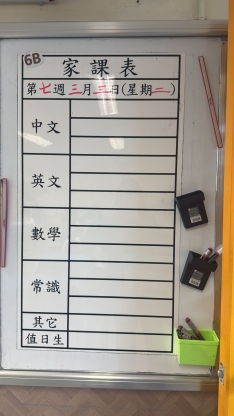 6B
家課表
第七週三月三日(星期二)
中文
英文
數學
常識
其它
值日生